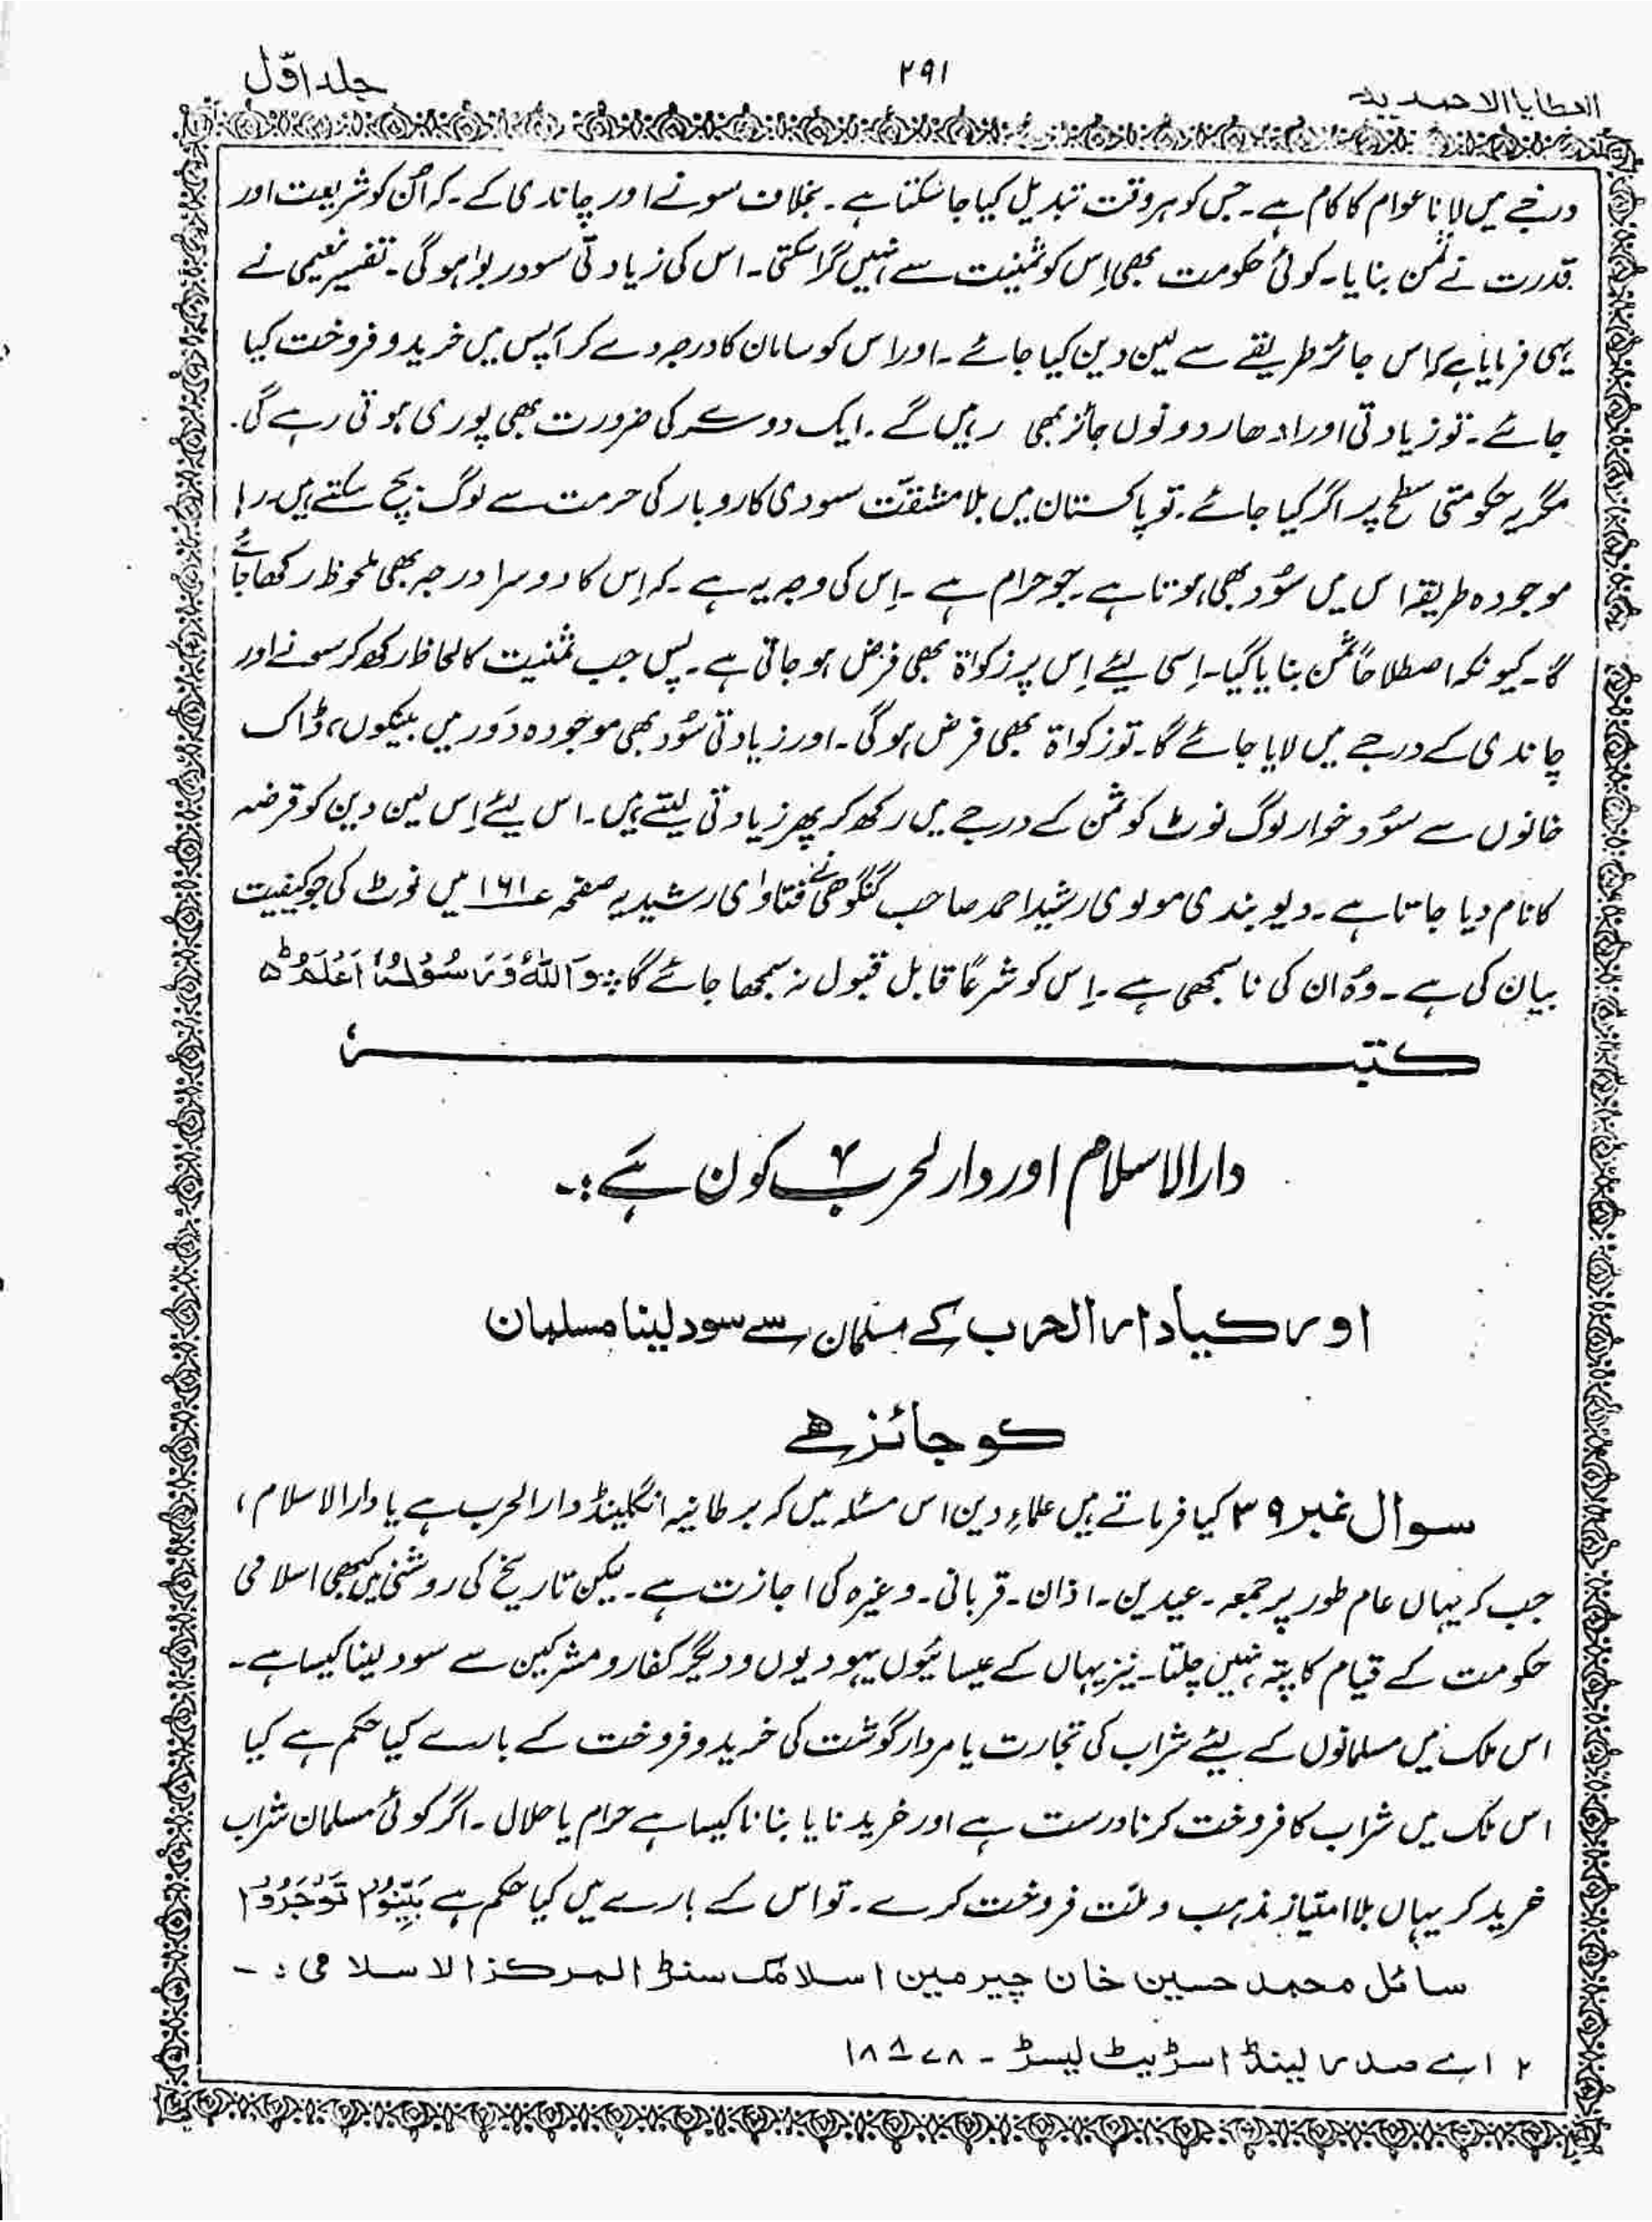 العطایا الاحمدیہ ۲۹۱ جلد اوّل
درجے میں لانا عوام کا کام ہے۔ جس کو ہر وقت تبدیل کیا جا سکتا ہے۔ بخلاف سونے اور چاندی کے۔ کہ اُن کو شریعت اور
قدرت نے ثمن بنایا۔ کوئی حکومت بھی اِس کو ثمنیت سے نہیں گرا سکتی۔ اس کی زیادتی سود ربوٰا ہوگی۔ تفسیر نعیمی نے
یہی فرمایا ہے کہ اس جائز طریقے سے لین دین کیا جائے۔ اور اس کو سامان کا درجہ دے کر آپس میں خرید و فروخت کیا
جائے۔ تو زیادتی اور ادھار دونوں جائز بھی رہیں گے۔ ایک دوسرے کی ضرورت بھی پوری ہوتی رہے گی۔
مگر یہ حکومتی سطح پر اگر کیا جائے۔ تو پاکستان میں بلا مشقّت سودی کاروبار کی حرمت سے لوگ بچ سکتے ہیں۔ رہا
موجودہ طریقہ اس میں سُود بھی ہوتا ہے۔ جو حرام ہے۔ اِس کی وجہ یہ ہے۔ کہ اِس کا دوسرا درجہ بھی ملحوظ رکھا جائے
گا۔ کیونکہ اصطلاحاً ثمن بنایا گیا۔ اِسی لیئے اِس پر زکواۃ بھی فرض ہو جاتی ہے۔ پس جب ثمنیت کا لحاظ رکھ کر سونے اور
چاندی کے درجے میں لایا جائے گا۔ تو زکواۃ بھی فرض ہوگی۔ اور زیادتی سُود بھی موجودہ دَور میں بینکوں، ڈاک
خانوں سے سُود خوار لوگ نوٹ کو ثمن کے درجے میں رکھ کر پھر زیادتی لیتے ہیں۔ اس لیئے اِس لین دین کو قرضہ
کا نام دیا جاتا ہے۔ دیوبندی مولوی رشید احمد صاحب گنگوھی نے فتاوٰی رشیدیہ صفحہ ع۱۶۱ میں نوٹ کی جو کیفیت
بیان کی ہے۔ وُہ ان کی ناسمجھی ہے۔ اِس کو شرعًا قابل قبول نہ سمجھا جائے گا۔ وَاللّٰہُ وَرَسُوْلُہٗ اَعْلَمُ ط ۵
کتبـــــہٗ
دارالاسلام اور دارلحرب کون ہے :۔
اور کیا دار الحرب کے مسلمان سے سود لینا مسلمان
کو جائز ھے
سوال نمبر ۳۹ کیا فرماتے ہیں علماءِ دین اس مسئلہ میں کہ برطانیہ انگلینڈ دارالحرب ہے یا دارالاسلام،
جب کہ یہاں عام طور پر جمعہ۔ عیدین۔ اذان۔ قربانی۔ وغیرہ کی اجازت ہے۔ لیکن تاریخ کی روشنی میں کبھی اسلامی
حکومت کے قیام کا پتہ نہیں چلتا۔ نیز یہاں کے عیسائیوں یہودیوں و دیگر کفار و مشرکین سے سود لینا کیسا ہے۔
اس ملک میں مسلمانوں کے لیئے شراب کی تجارت یا مردار گوشت کی خرید و فروخت کے بارے کیا حکم ہے کیا
اس ملک میں شراب کا فروخت کرنا درست ہے اور خریدنا یا بنانا کیسا ہے حرام یا حلال۔ اگر کوئی مسلمان شراب
خرید کر یہاں بلا امتیاز مذہب و ملّت فروخت کرے۔ تو اس کے بارے میں کیا حکم ہے بَیِّنُوْا تَوْجَرُوْا
سائل محمد حسین خان چیرمین اسلامک سنٹر المرکز الاسلامی :۔
۲ اے صدر لینڈ اسٹریٹ لیسٹر ۔